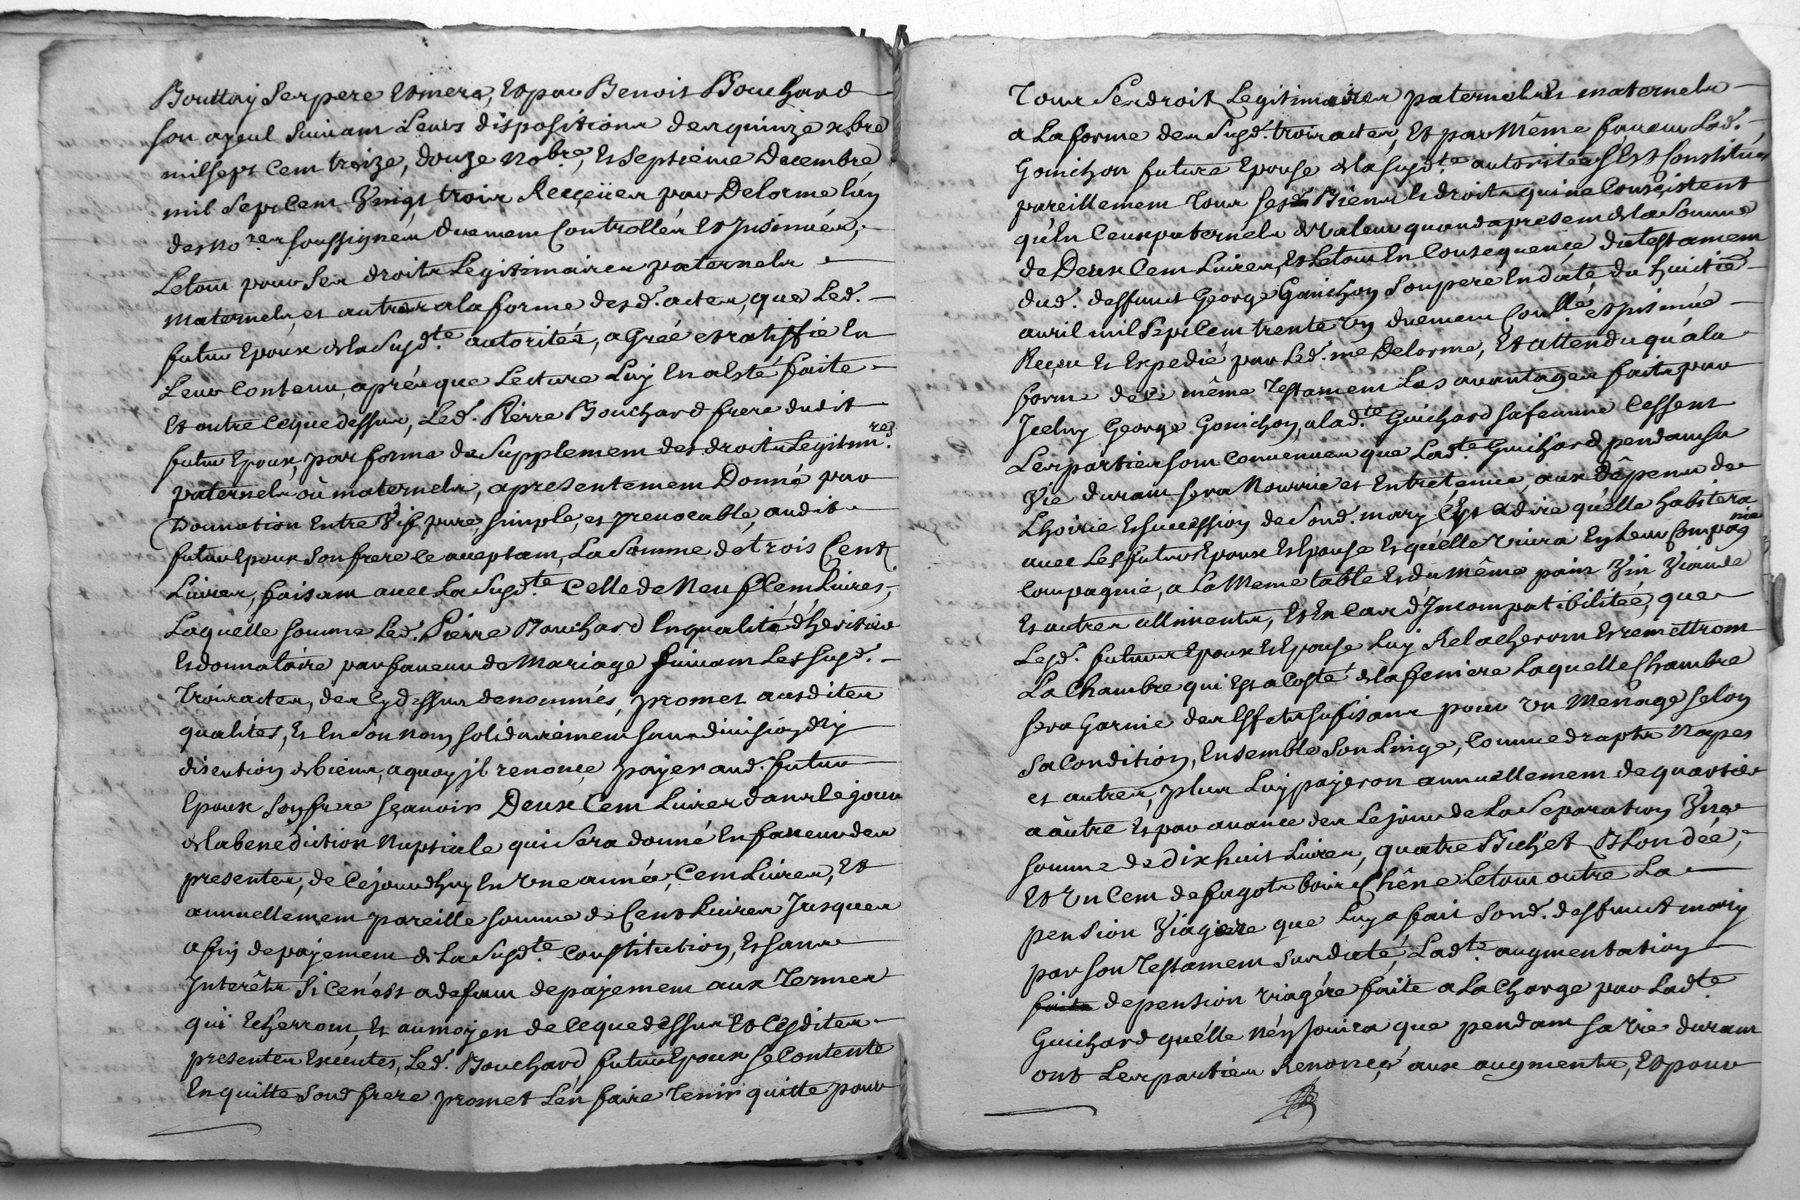 Bouttay ses pere et mere, et par Benoit Bouchard
son ayeul suivant Leurs dispositions des quinze xbre
mil sept cem treize, douze nobre, et septieme Decembre
mil sept cem Vingt trois Reçeües par Delorme l'un
des Nores soussignés duement Controllés et Insinués,
Letout pour ses droits Legitimaires paternels
maternels, et autres a la forme desd. actes, que Led.
futur Epoux de la Susd.te autorité, a Greé et ratiffié en
Leur Contenu, aprés que Lecture Luy En a Esté faite
Et outre Ceque dessus, Led. Pierre Bouchard frere dudit
futur Epoux, par forme de Supplement des droits Legitimres
paternels où maternels, a presentement Donné par
Donnation Entre Vifs pure, simple, et yrevocable, audit
futur Epoux son frere ce aceptant, La Somme de trois Cent
Livres, faisant avec La Susd.te Celle de Neuf Cem Livres,
Laquelle somme Led. Pierre Bouchard En qualité d'heritier
Et donnataire par faveur de Mariage suivant Les susd.
trois actes, des Cy dessus denommés, promet ausdites
qualités, Et En Son Nom solidairement sans division Ny
discution de biens, a quoy jl renonçe payer aud. futur
Epoux son frere sçavoir Deux Cem Livres dans le jour
de la benediction Nuptiale qui Sera donné En faveur des
presentes, de Cejourdhuy En Vne année, Cem Livres, Et
annuellement pareille somme de Cent Livres Jusques
a fin de payement de La Susd.te Constitution, Et sans
Interêts Si Ce n'ést a defaut de payement aux Termes
qui Echerront, Et au moyen de Ceque dessus Et Cesdites
presentes Executés, Led. Bouchard futur Epoux se Contente
En quitte Sond frere promet L'en faire Tenir quitte pour
Tous Ses droits Legitimaires paternels Et maternels
a La forme des Susd. trois actes, Et par Même faveur Lad.
Gonichon future Epouse de la susd.te autoritée S'est Constitués
pareillement Tous ses Biens Et droits qui ne Consistent
qu'En Ceux paternels de Valeur quand a present de la Somme
de Deux Cem Livres, Et Letout En Consequençe du testament
dud. deffunct George Gonichon Son pere En date du huictie
avril mil Sept Cem trente Vn duement Conllé et Jnsinué
Reçeu Et Expedié par Led. me Delorme, Et attendu qu'a la
forme de Ce même Testament Les avantages faits par
Jceluy George Gonichon, a lad.te Guichard sa femme Cessent
Les parties sont Convenues que Lad.te Guichard pendant sa
Vie durant sera Nourrie et Entretenue aux dêpens de
L'hoirie Et Succession de Sond. mary C'est a dire qu'elle habitera
avec Les futurs Epoux Et Epouse Et qu'elle vivra En Leur Compagnie
Compagnie, a La Meme table Et du Même pain Vin Viande
Et autres allimens, Et En Cas d'Incompatibilitée, que
Lesd. futurs Epoux Et Epouse Luy Relacheront Et remettront
La Chambre qui Est a Costé de la feniere Laquelle Chambre
sera Garnie des Effets sufisans pour un Menage selon
Sa Condition, Ensemble Son Linge, Comme draps Napes
et autres, plus Luy payeront annuellement de quartier
a aûtre Et par avance des Lejour de La Separation Vne
somme de dix huit Livres, quatre Bichet Blondée,
Et Vn Cem de fagots bois Chêne Letout outre La
pension Viagere que Luy a fait Sond. deffunct mary
par son Testament Susdaté, Ladte. augmentation
faite de pension viagére faite a La Charge par Lad.te
Guichard qu'élle n'en Jouira que pendant sa vie durant
ont Les parties Renonçé aux augments, Et pour